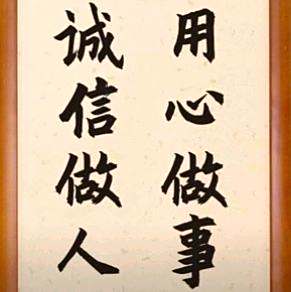 用心做事
誠信做人